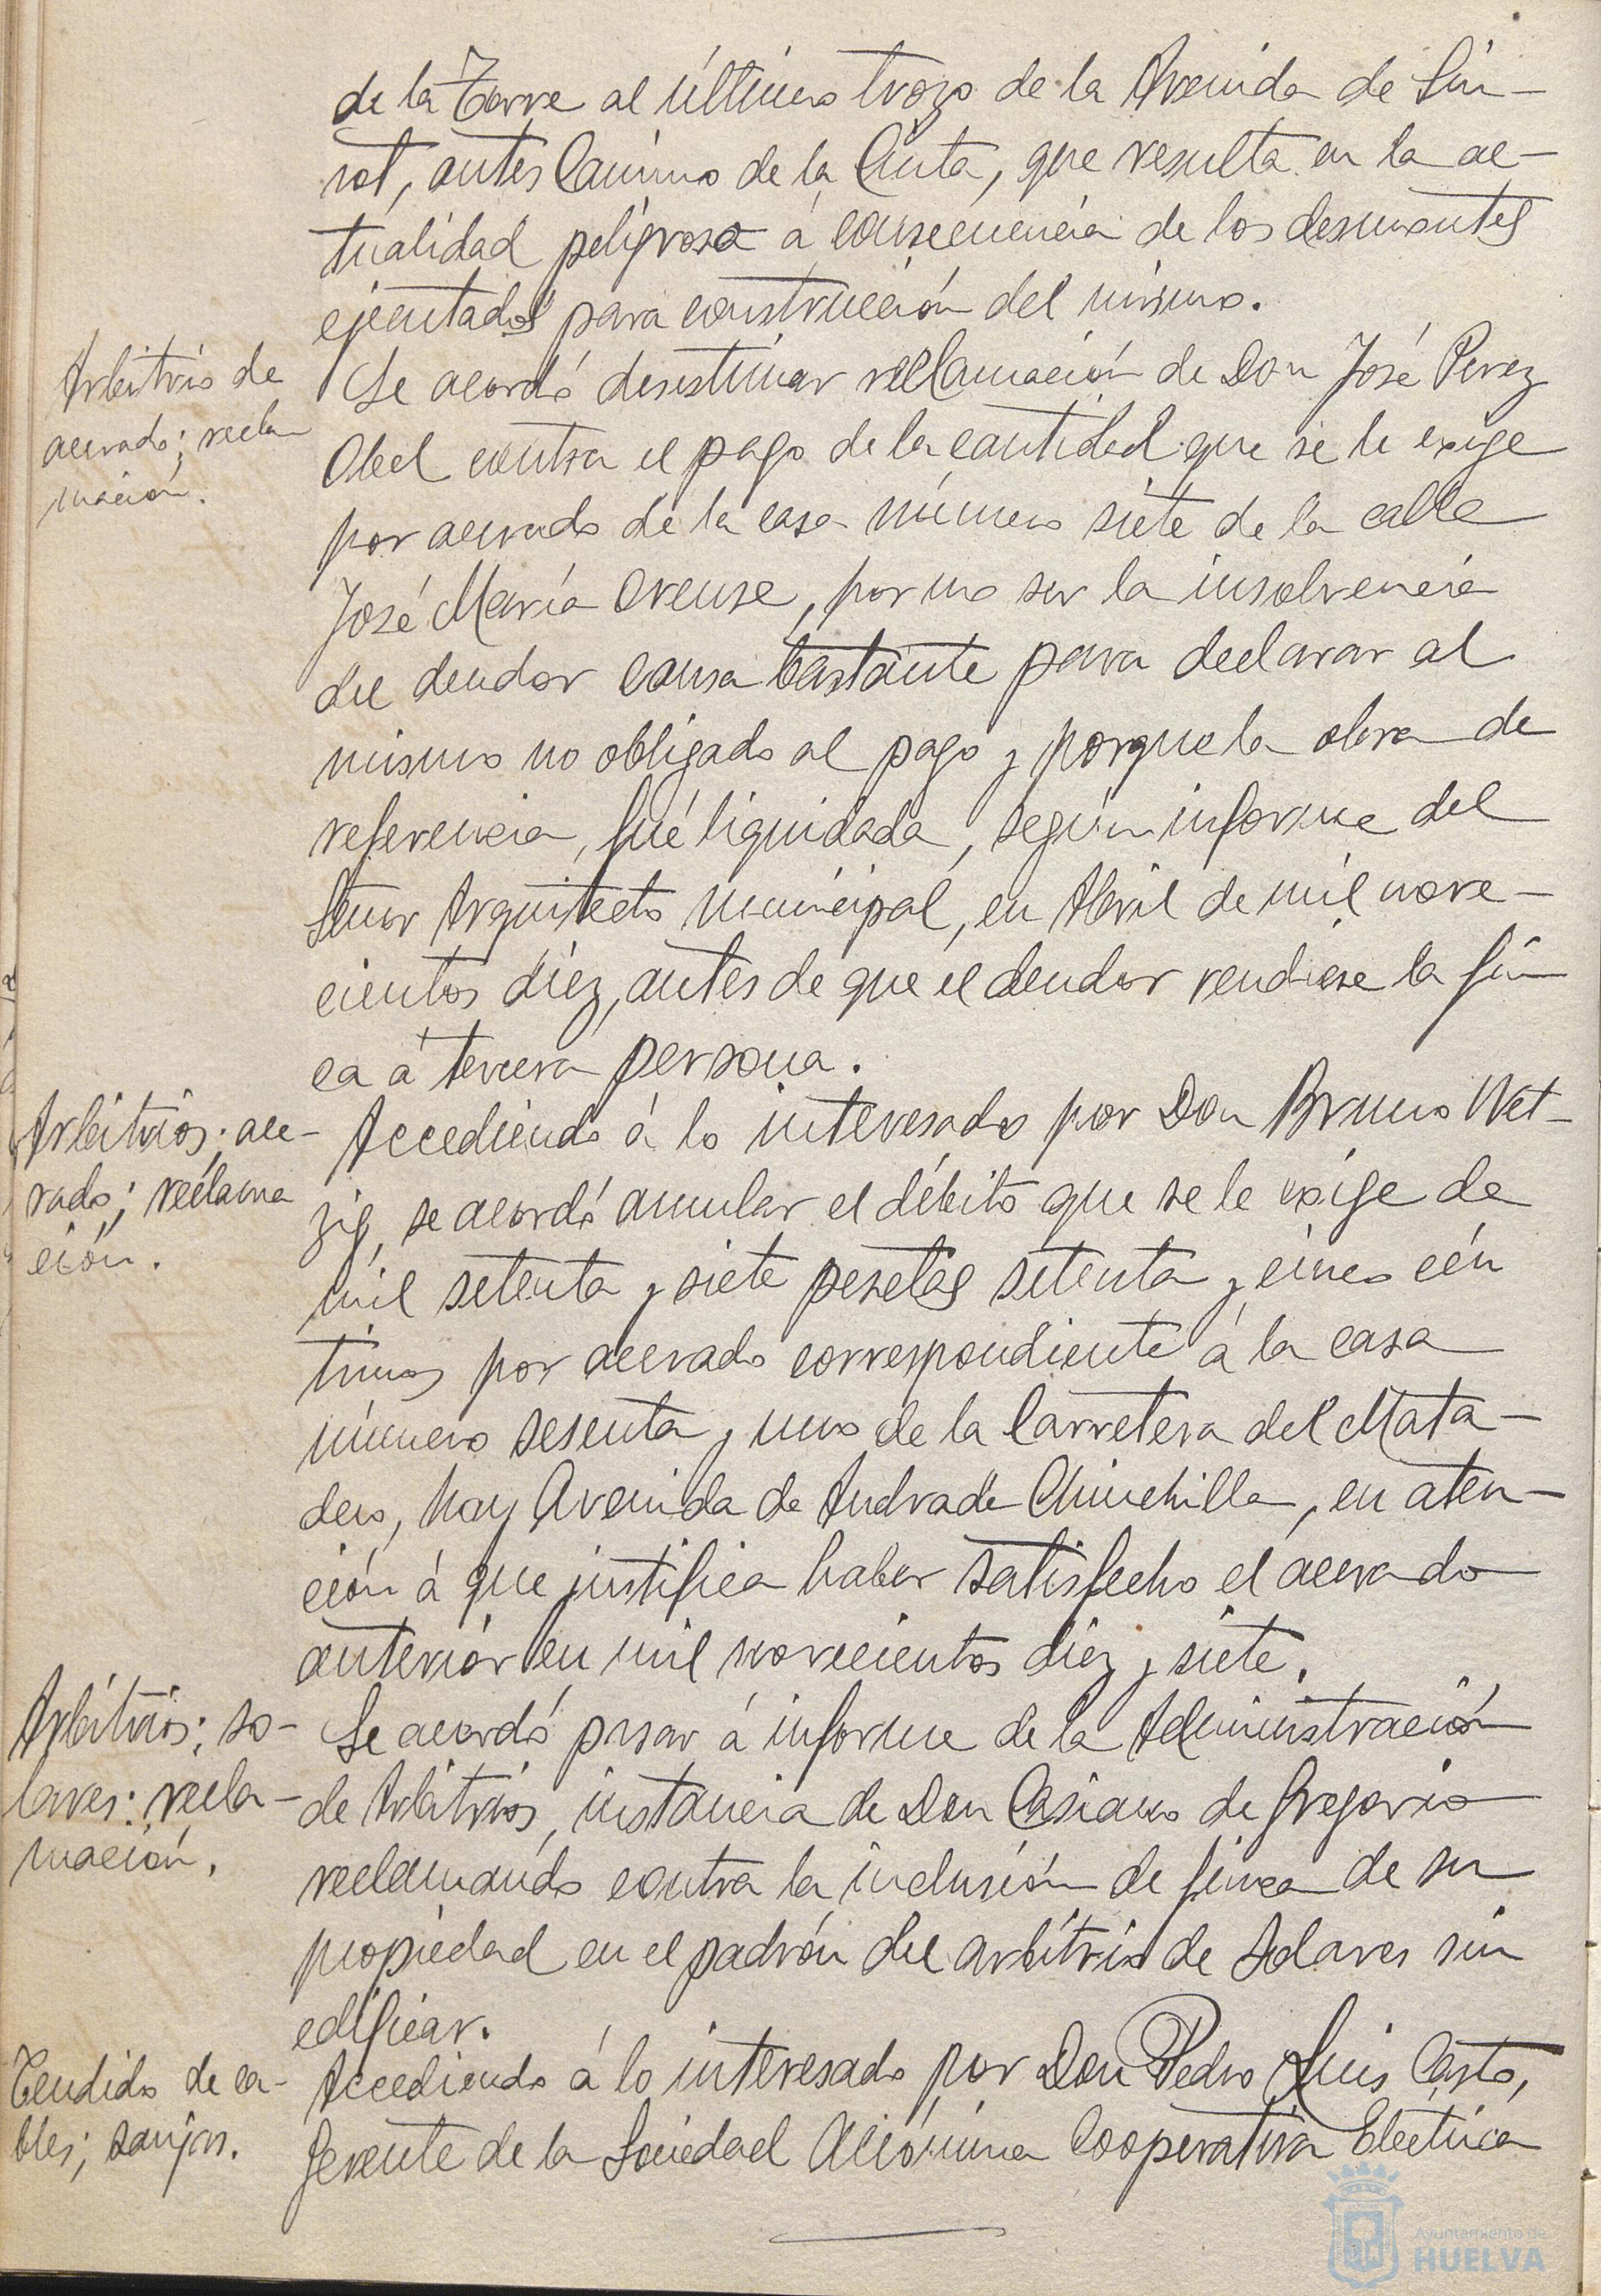 de la Torre al último trozo de la Avenida de Sin-
rot, antes Camino de la Cinta, que resulta en la ac-
tualidad peligrosa á consecuencia de los desmontes
ejecutados para construcción del mismo.
Arbitrio de
acerado; recla
mación.
Se acordó desestimar reclamación de Don José Perez
Abel contra el pago de la cantidad que se le exige
por acerado de la casa número siete de la calle
José María Orense, por no ser la insolvencia
del deudor causa bastante para declarar al
mismo no obligado al pago y porque la obra de
referencia, fué liquidada, según informe del
Señor Arquitecto municipal, en Abril de mil nove-
cientos diez, antes de que el deudor vendiese la fin
ca á tercera persona.
Arbitrios; ace-
rado; reclama
ción.
Accediendo á lo interesado por Don Bruno Wet-
zig, se acordó anular el débito que se le exige de
mil setenta y siete pesetas setenta y cinco cén
timos por acerado correspondiente á la casa
número sesenta y uno de la Carretera del Mata-
dero, hoy Avenida de Andrade Chinchilla, en aten-
ción á que justifica haber satisfecho el acerado
anterior en mil novecientos diez y siete.
Arbitrios; so-
lares; recla-
mación.
Se acordó pasar á informe de la Administración
de Arbitrios, instancia de Don Casiano de Gregorio
reclamando contra la inclusión de finca de su
propiedad en el padrón del arbitrio de Solares sin
edificar.
Tendido de ca-
bles; zanjas.
Accediendo á lo interesado por Don Pedro Luis Casto,
Gerente de la Sociedad Anónima Cooperativa Electrica
Ayuntamiento de
HUELVA